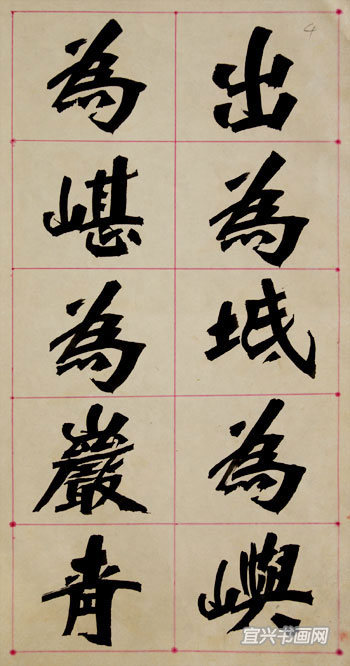 4
出為坻為嶼
為嵁為巖青
宜兴书画网